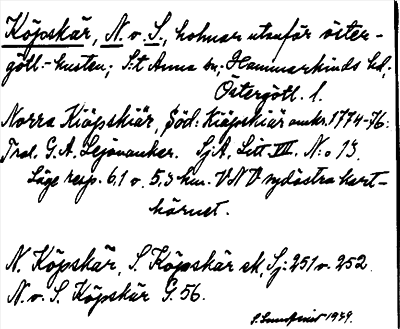 Köpskär, N. o. S., holmar utanför öster-
götl.-kusten; S:t Anna sn; Hammarkinds hd.;
Östergötl. l.
Norra Kiöpskiär, Söd: Kiöpskiär omkr. 1774-76:
Trol. G. A. Lejonancker. SjA, Litt VII. N:o 13.
Läge resp. 6,1 o. 5,3 km. VNV sydöstra kart-
hörnet.
N. Köpskär, S. Köpskär ek, Sj. 251 o. 252.
N. o. S. Köpskär G. 56.
1949.